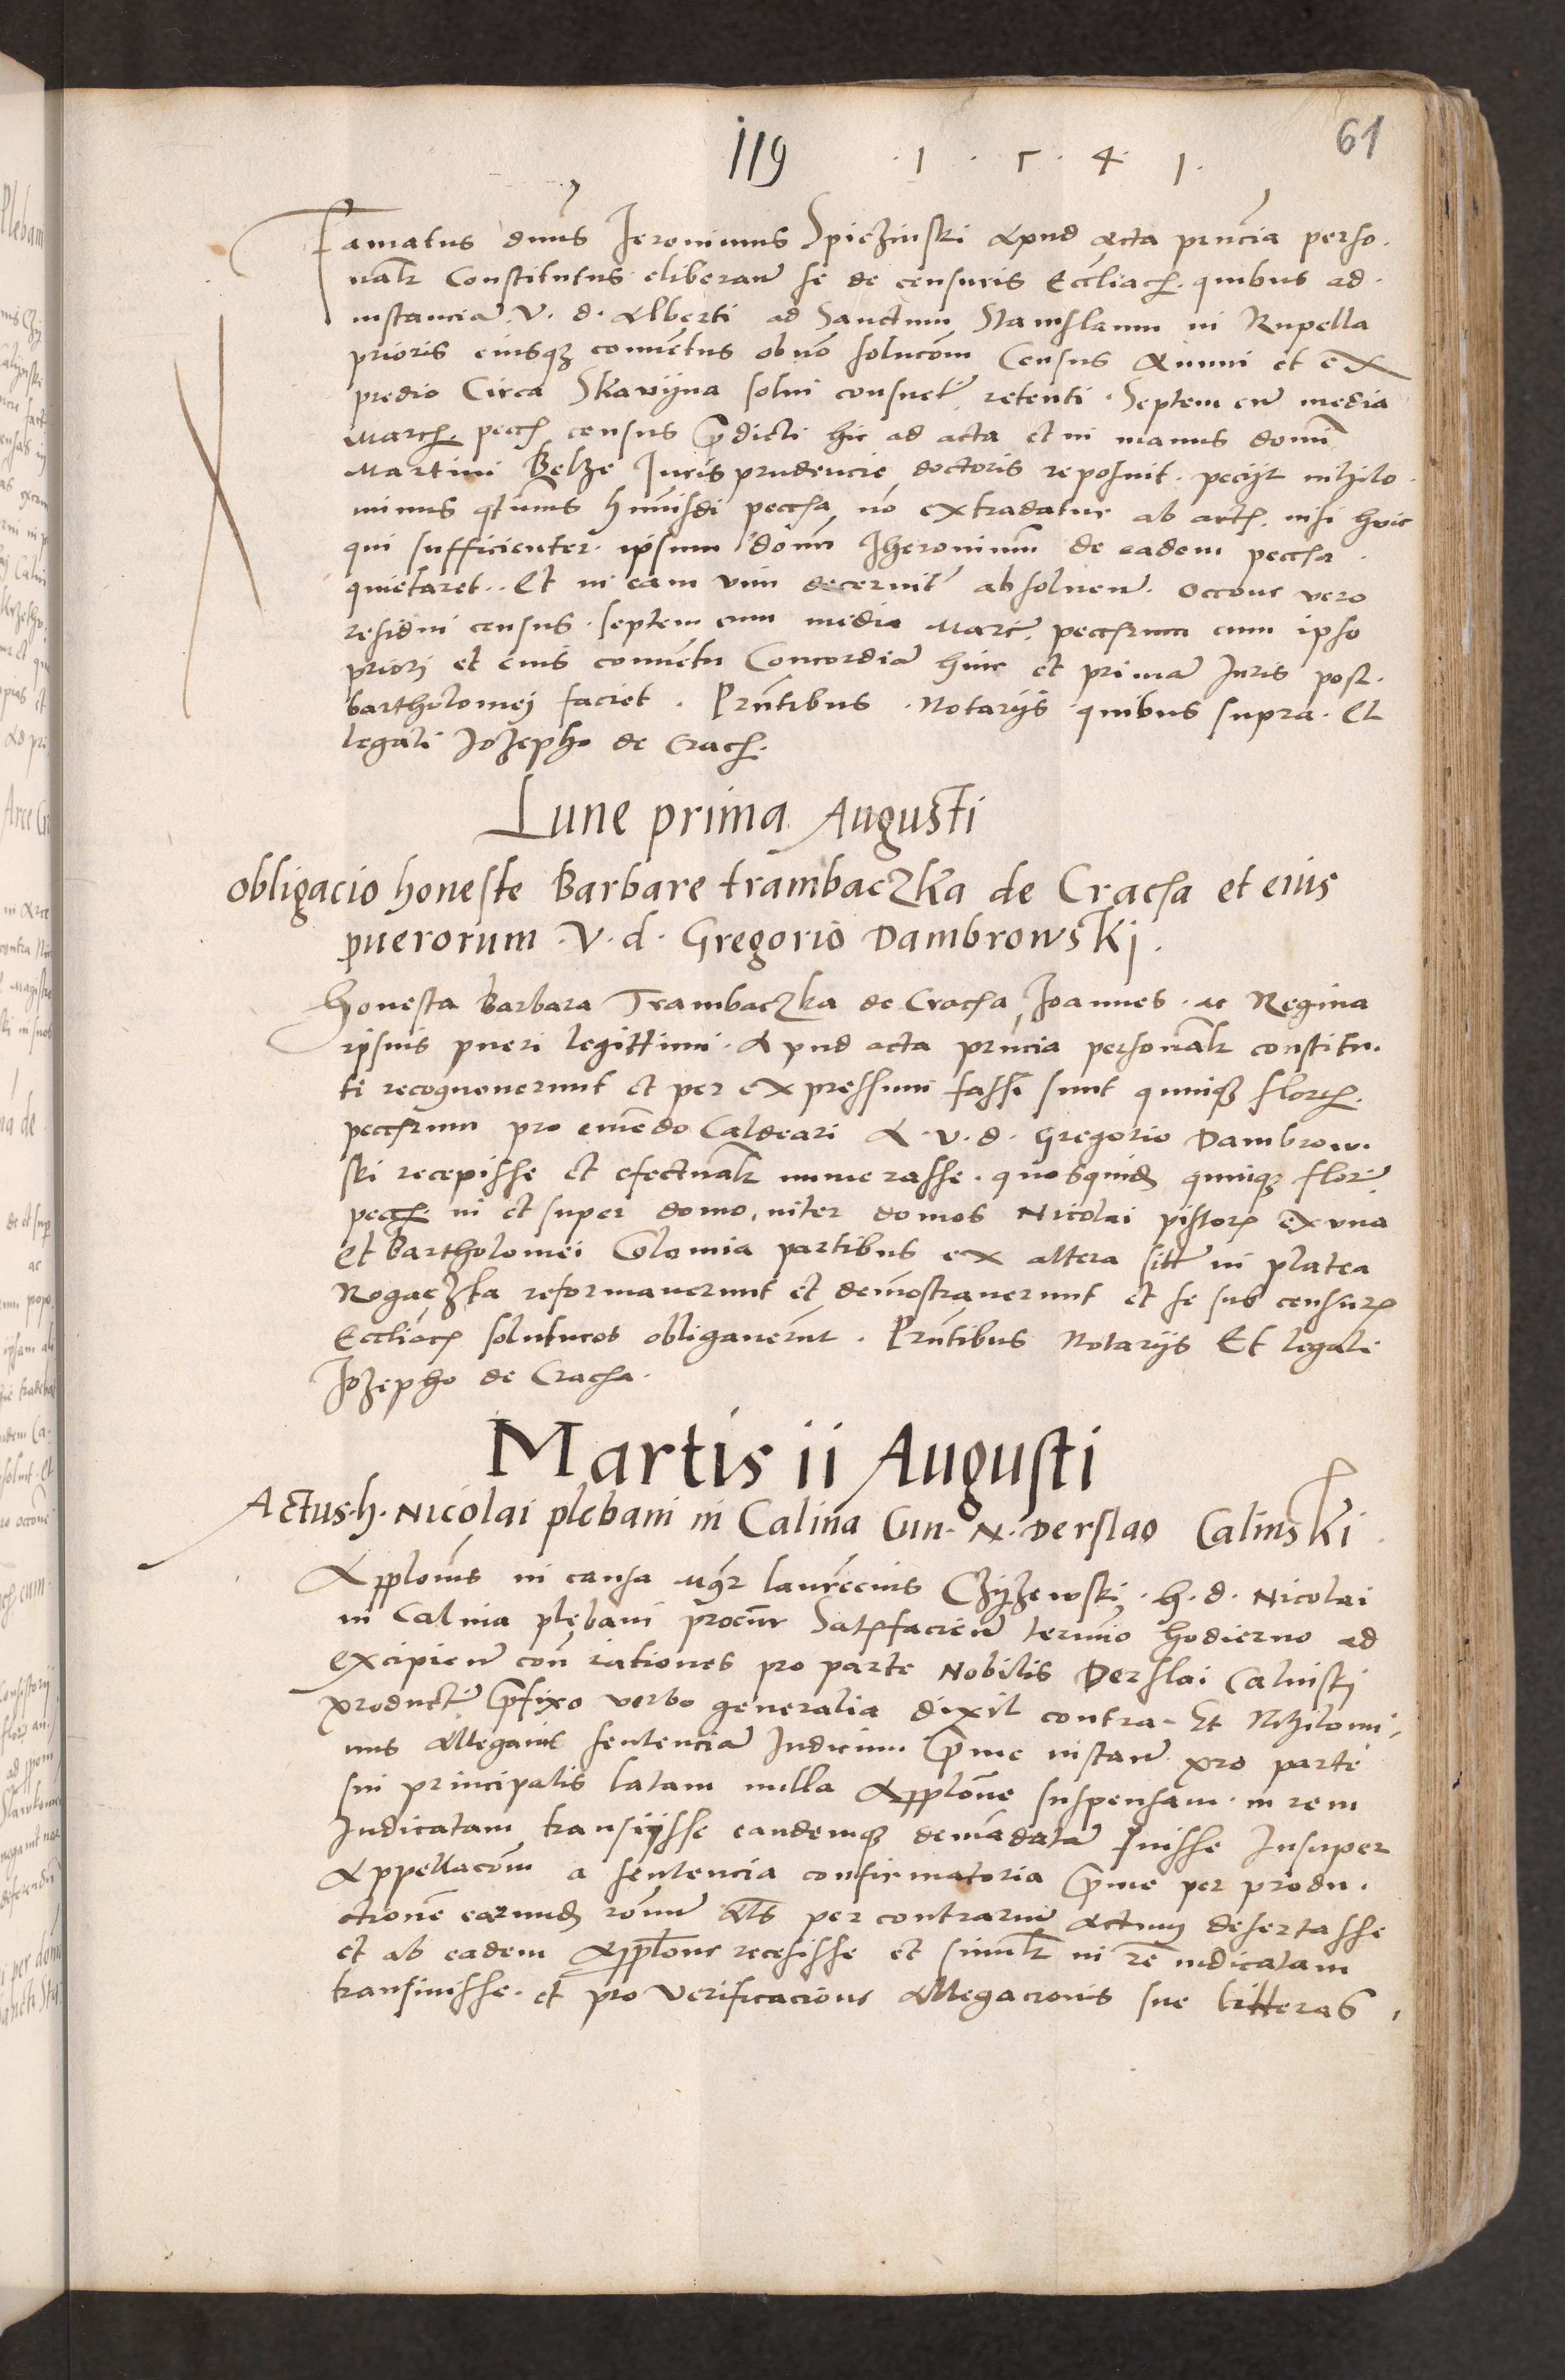 119 · 1 · 5 · 4 · 1 · 61
Famatus dnus Jeronimus Spiczinski apud acta prncia perso·
nalr Constitutus eliberan se de censuris Eccliac. quibus ad·
instancia V. d. Alberti ad Sanctum Stanislaum in Rupella
prioris eiusq conventus ob no solucom Census Annui et ex
predio Circa Skavyna solui consueti retenti. Septem cu media
Marc. pecc census pdicti hic ad acta et in manus domi
Martini Belze Juris prudencie doctoris reposuit. peciit nihilo·
minus qtus huiusdi peccia no extradatur ab act. nisi huic
qui sufficienter ipsum donm Jheronimum de eadem peccia
quietaret. Et in eam vim decernit absoluen. Occone vero
residui census septem cum media Marc. peccrum cum ipso
priori et eius conventu Concordia hinc et prima Juris post.
bartholomej faciet. Prntibus Notarijs quibus supra. Et
legali Jozepho de Crac.
Lune prima Augusti
obligacio honeste Barbare trambaczka de Cracia et eius
puerorum V. d. Gregorio Dambrowskj.
Honesta Barbara Trambaczka de Cracia Joannes ac Regina
ipsius pueri legittimi. Apud acta prncia personalr constitu·
ti recognoverunt et per expressum fassi sunt quinq flor.
peccrum pro emendo Caldeari A. v. d. Gregorio Dambrow·
ski recepisse et efectualr numerasse. quosquid quinq flor
pecc. in et super domo, inter domos Nicolai pistor ex una
et Bartholomei Colomia partibus ex altera sitt in platea
Rogaczka reformaverunt et demostraverunt et se sub censur
Eccliac soluturos obligaverunt. Prntibus Notarijs Et legali
Jozepho de Cracia.
Martis ii Augusti
Actus. h. Nicolai plebani in Calina Cum. N. Derslao Calinski
Applonis in causa mgr laurecius Czyzewski. H. d. Nicolai
in Calina plebani procur Satisfacien termio hodierno ad
excipien con rationes pro parte Nobilis Derslai Calinskj
product pfixo verbo generalia dixit contra. Et Nihilomi,
nus Allegans sentencia Judicium prime instan pro parte
sui principalis latam nulla Applone suspensam. in rem
Judicatam transiisse eandemq demadata fuisse Insuper
Appellacom a sentencia confirmatoria prime per produ·
ctione earund ronum als per contrariu actum desertasse
et ab eadem Applone recesisse et simulr in re iudicatam
transiuisse. et pro verificacione Allegacionis sue litteras